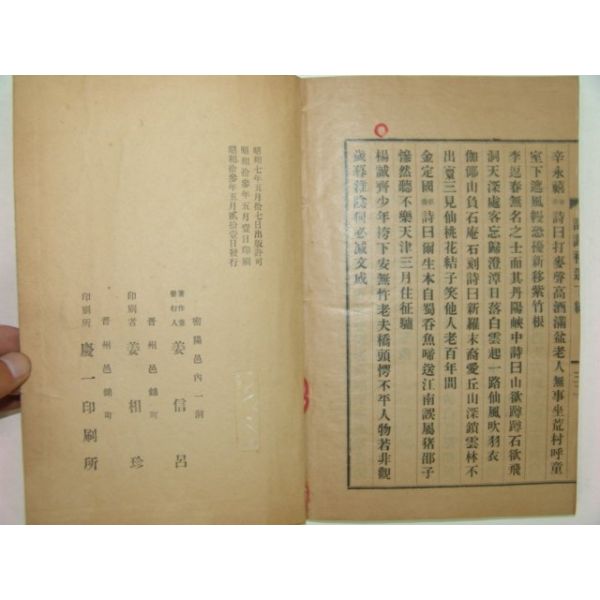 辛永禧 詩曰打麥聲高酒滿盆老人無事坐荒村呼童
室下遮風幔恐擾新移紫竹根
李逅春無名之士而其丹陽峽中詩曰山欲蹲蹲石欲飛
洞天深處客忘歸澄潭日落白雲起一路仙風吹羽衣
伽倻山負石庵石刻詩曰新羅末裔愛丘山深鎖雲林不
出寰三見仙桃花結子笑他人老百年間
金定國 詩曰爾生本自蜀呑魚啼送江南誤屬豬邵子
愴然聽不樂天津三月住征驢
楊誠齊少年袴下安無竹老夫橋頭愕不平人物若非觀
歲暮淮陰何必減文成
昭和七年五月拾七日出版許可
昭和拾參年五月壹日印刷
昭和拾參年五月貳拾壹日發行
密陽邑內一洞
著作兼發行人 姜信呂
晋州邑錦町
印刷者 姜相珍
晋州邑錦町
印刷所 慶一印刷所